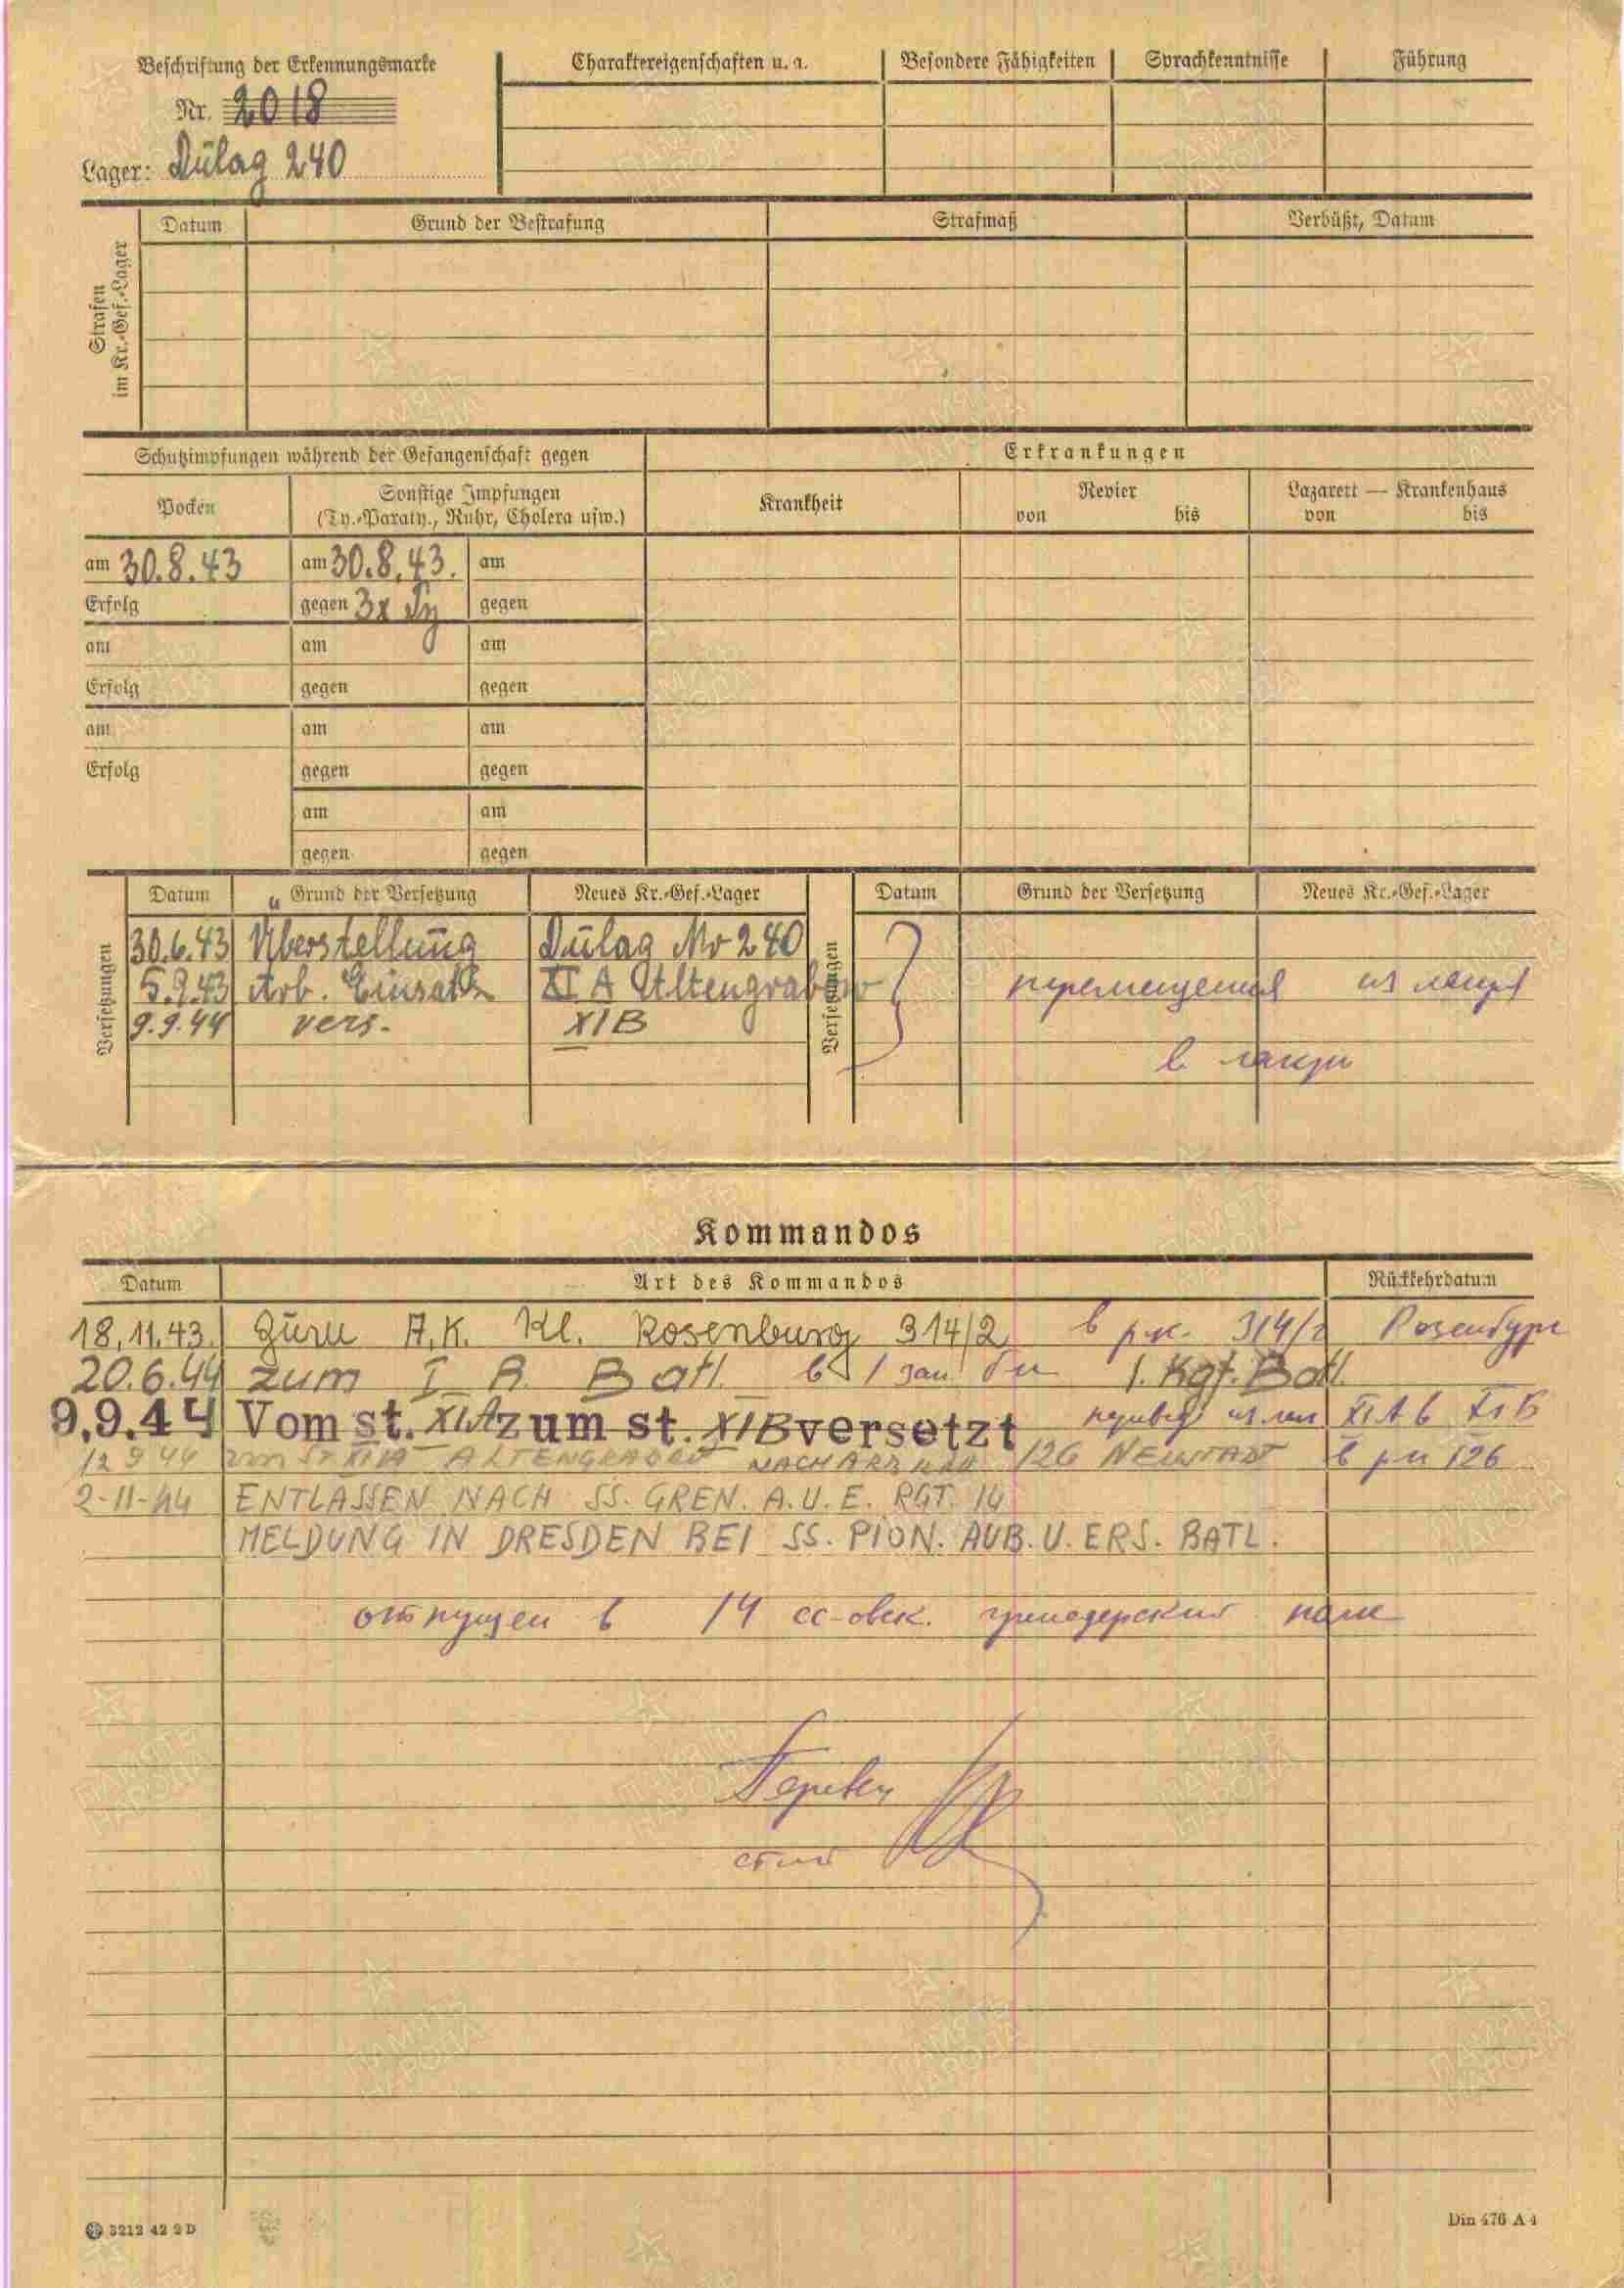 Beschriftung der Erkennungsmarke
Nr. 2018
Lager: Dulag 240
Charaktereigenschaften u. a.
Besondere Fähigkeiten
Sprachkenntnisse
Führung
Strafen im Kr.-Gef.-Lager
Datum
Grund der Bestrafung
Strafmaß
Verbüßt, Datum
Schutzimpfungen während der Gefangenschaft gegen
Erkrankungen
Pocken
Sonstige Impfungen
(Ty.-Paraty., Ruhr, Cholera usw.)
Krankheit
Revier
von bis
Lazarett — Krankenhaus
von bis
am 30.8.43 am 30.8.43. am
Erfolg gegen 3x Ty gegen
am am am
Erfolg gegen gegen
am am am
Erfolg gegen gegen
am am
gegen gegen
Versetzungen
Datum Grund der Versetzung Neues Kr.-Gef.-Lager
30.6.43 Überstellung Dulag Nr 240
5.9.43 Arb. Einsatz XI A Altengrabow
9.9.44 vers. XI B
Versetzungen
Datum Grund der Versetzung Neues Kr.-Gef.-Lager
перемещения из лагеря
в лагерь
Kommandos
Datum Art des Kommandos Rückkehrdatum
18.11.43. Zum A.K. Kl. Rosenburg 314/2 в р.к. 314/2 Розенбург
20.6.44 zum I B. Batl. в 1 бат 1. Kgf. Batl.
9.9.44 Vom st. XI A zum st. XI B versetzt из XI A в XI B
12 9 44 ALTENGRABOW NACH 126 NEUSTADT в 126
2-11-44 ENTLASSEN NACH SS. GREN. A.U.E. RGT. 14
MELDUNG IN DRESDEN BEI SS. PION. AUB. U. ERS. BATL.
отпущен в 14 сс-овск. гренадерский полк
Перевел
3212 42 2 D
Din 476 A 4